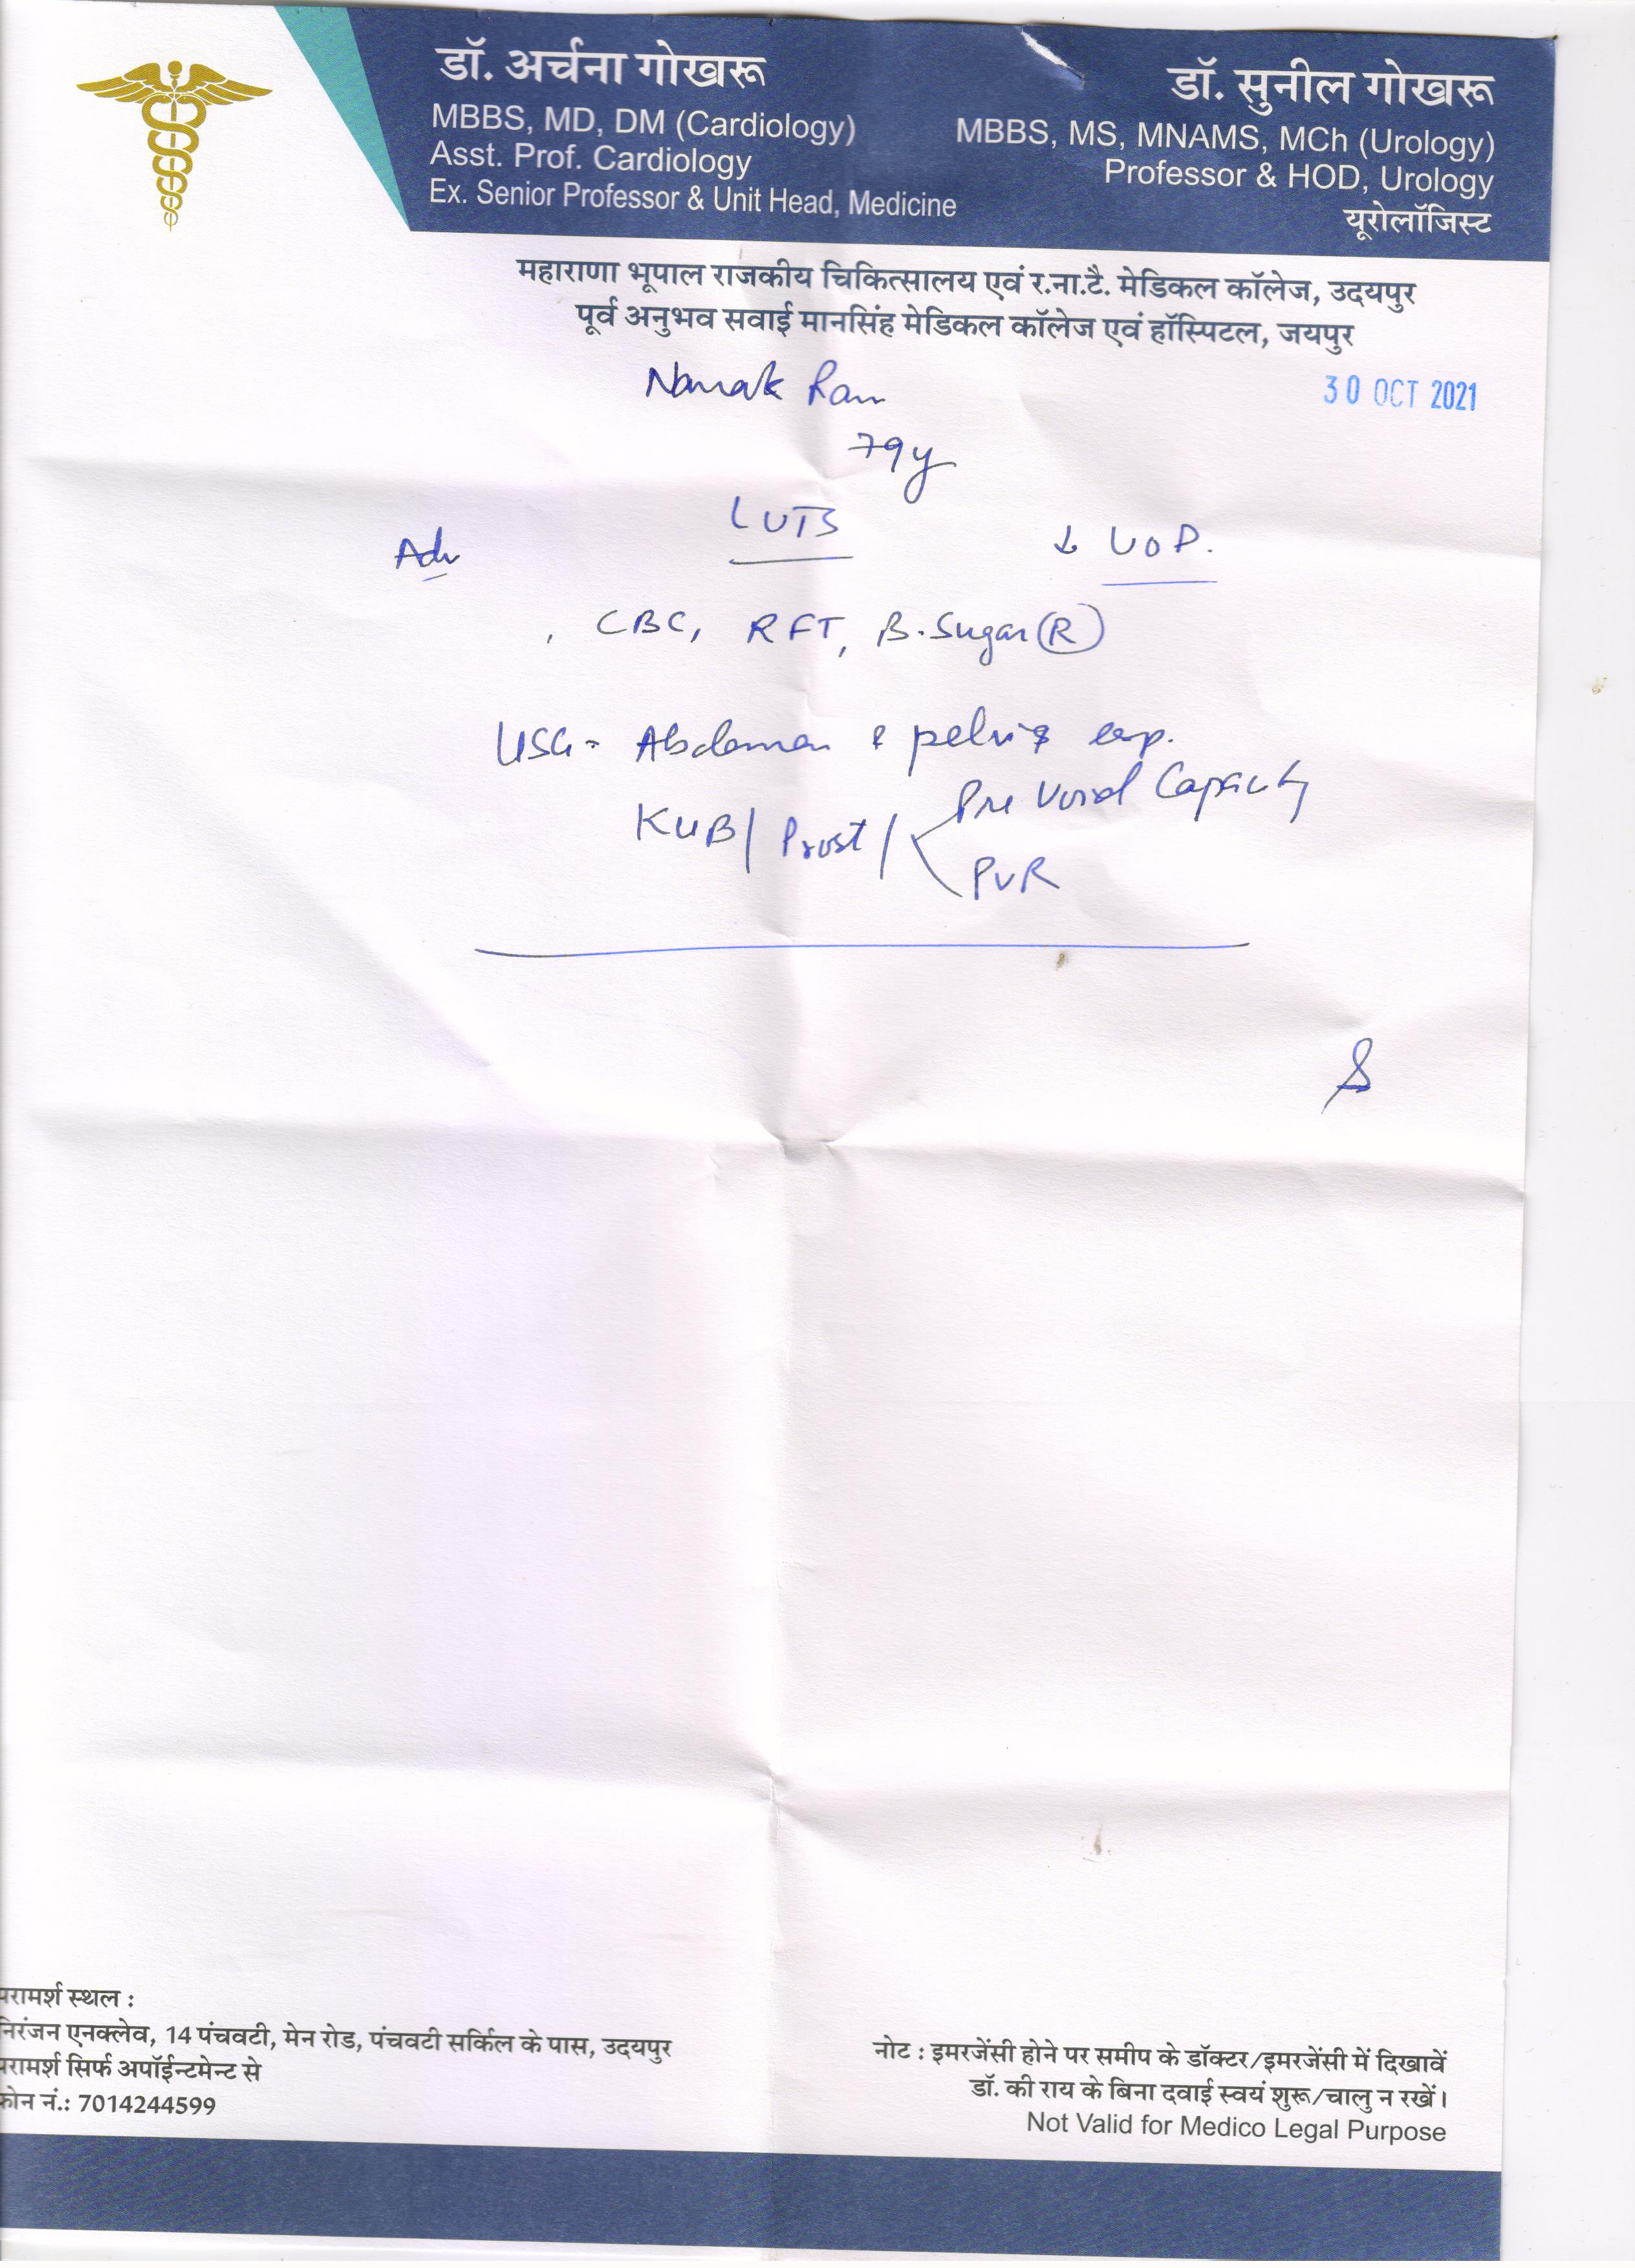 डॉ. अर्चना गोखरू
MBBS, MD, DM (Cardiology)
Asst. Prof. Cardiology
Ex. Senior Professor & Unit Head, Medicine
डॉ. सुनील गोखरू
MBBS, MS, MNAMS, MCh (Urology)
Professor & HOD, Urology
यूरोलॉजिस्ट
महाराणा भूपाल राजकीय चिकित्सालय एवं र.ना.टै. मेडिकल कॉलेज, उदयपुर
पूर्व अनुभव सवाई मानसिंह मेडिकल कॉलेज एवं हॉस्पिटल, जयपुर
Nanak Ram
30 OCT 2021
79y
LUTS
Adv
↓ UOP.
CBC, RFT, B. Sugar (R)
USG - Abdomen & pelvis esp.
KUB / Prost / Pre Void Capacity
PVR
परामर्श स्थल :
निरंजन एनक्लेव, 14 पंचवटी, मेन रोड, पंचवटी सर्किल के पास, उदयपुर
परामर्श सिर्फ अपॉईन्टमेन्ट से
फोन नं.: 7014244599
नोट : इमरजेंसी होने पर समीप के डॉक्टर/इमरजेंसी में दिखावें
डॉ. की राय के बिना दवाई स्वयं शुरू/चालु न रखें।
Not Valid for Medico Legal Purpose